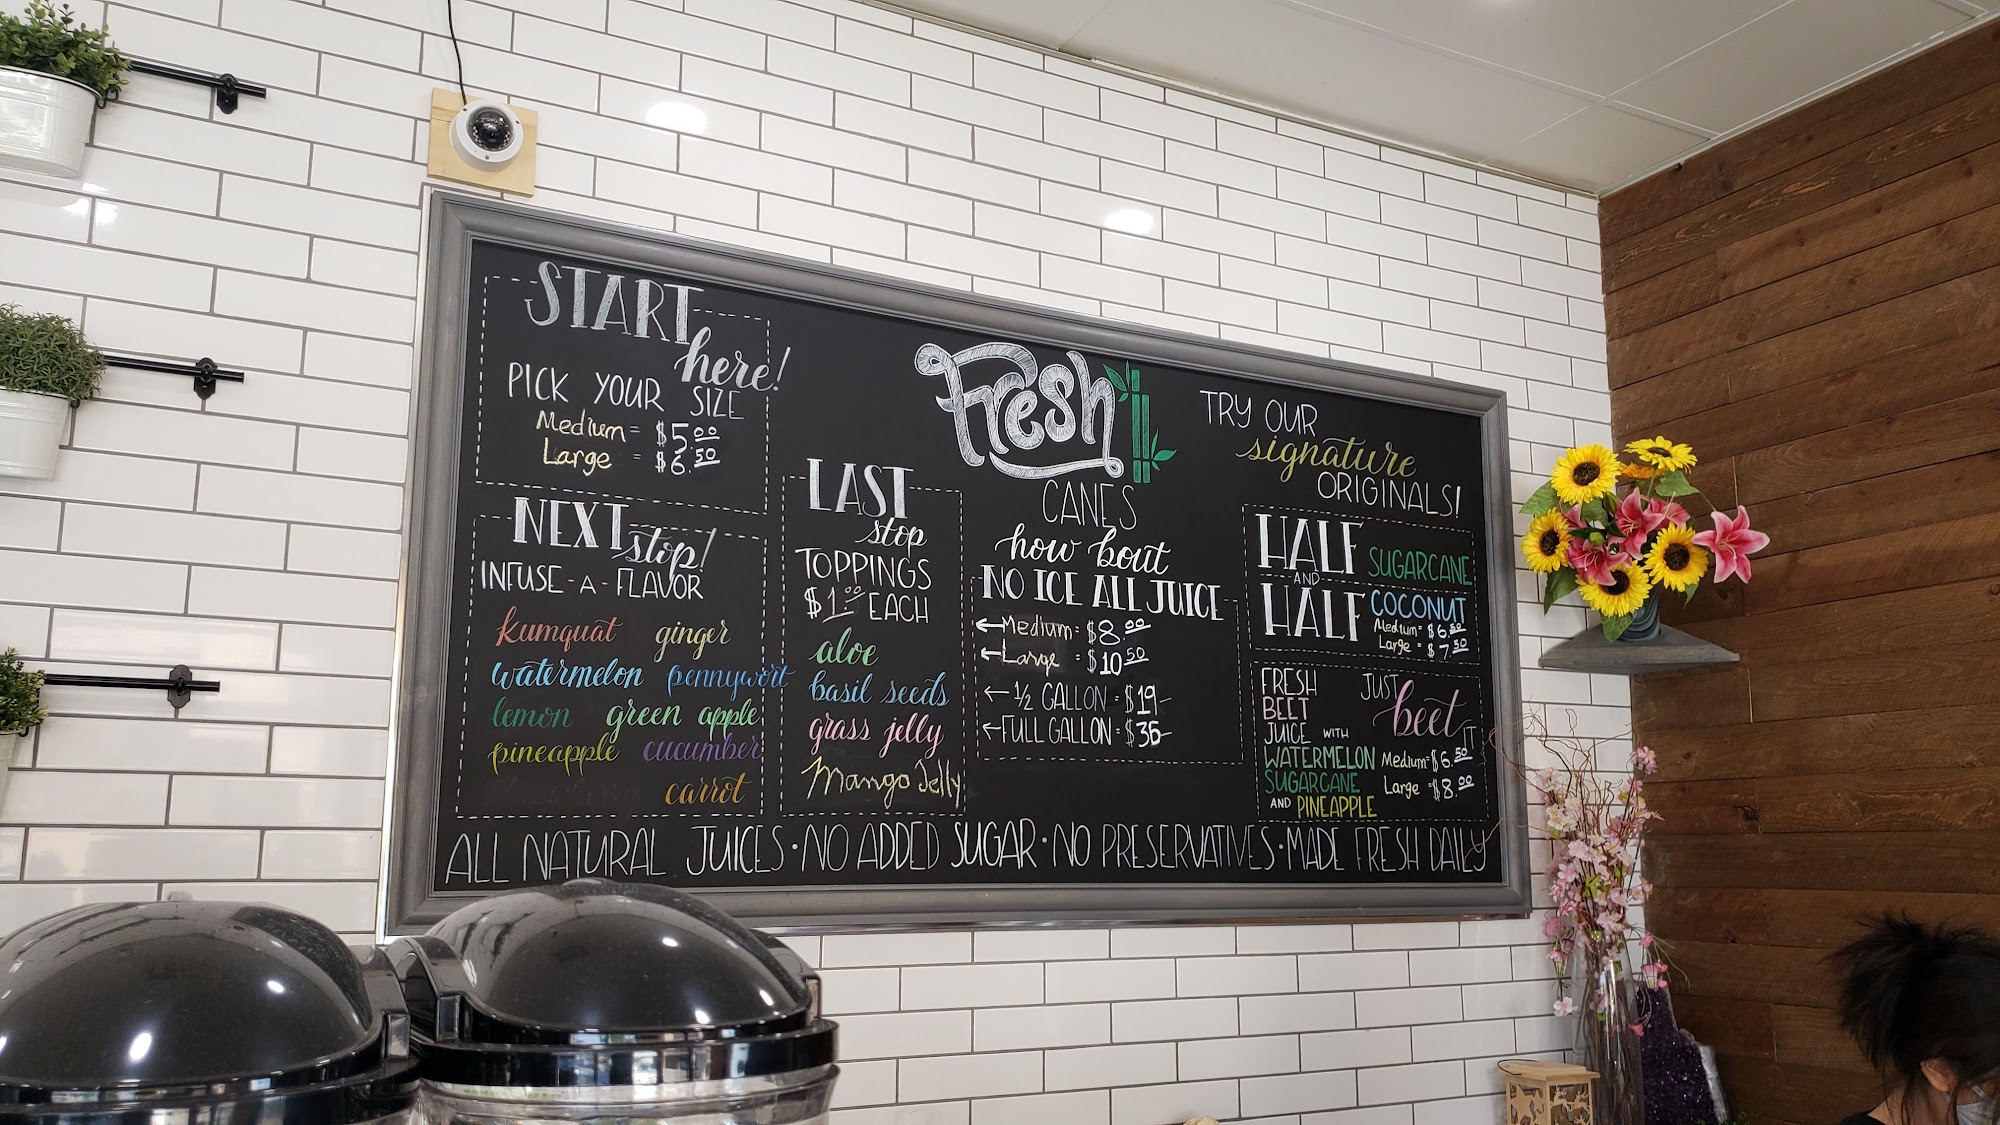 START
here!
PICK YOUR SIZE
Medium = $5.00
Large = $6.50
NEXT
stop!
INFUSE-A-FLAVOR
kumquat ginger
watermelon pennywort
lemon green apple
pineapple cucumber
carrot
LAST
stop
TOPPINGS
$1.00 EACH
aloe
basil seeds
grass jelly
Mango Jelly
Fresh
CANES
how bout
NO ICE ALL JUICE
←Medium = $8.00
←Large = $10.50
←1/2 GALLON = $19-
←FULL GALLON = $36-
TRY OUR
signature
ORIGINALS!
HALF SUGARCANE
AND
HALF COCONUT
Medium = $6.50
Large = $7.50
FRESH
BEET
JUICE WITH
WATERMELON
SUGARCANE
AND PINEAPPLE
JUST
beet
IT
Medium = $6.50
Large = $8.00
ALL NATURAL JUICES • NO ADDED SUGAR • NO PRESERVATIVES • MADE FRESH DAILY